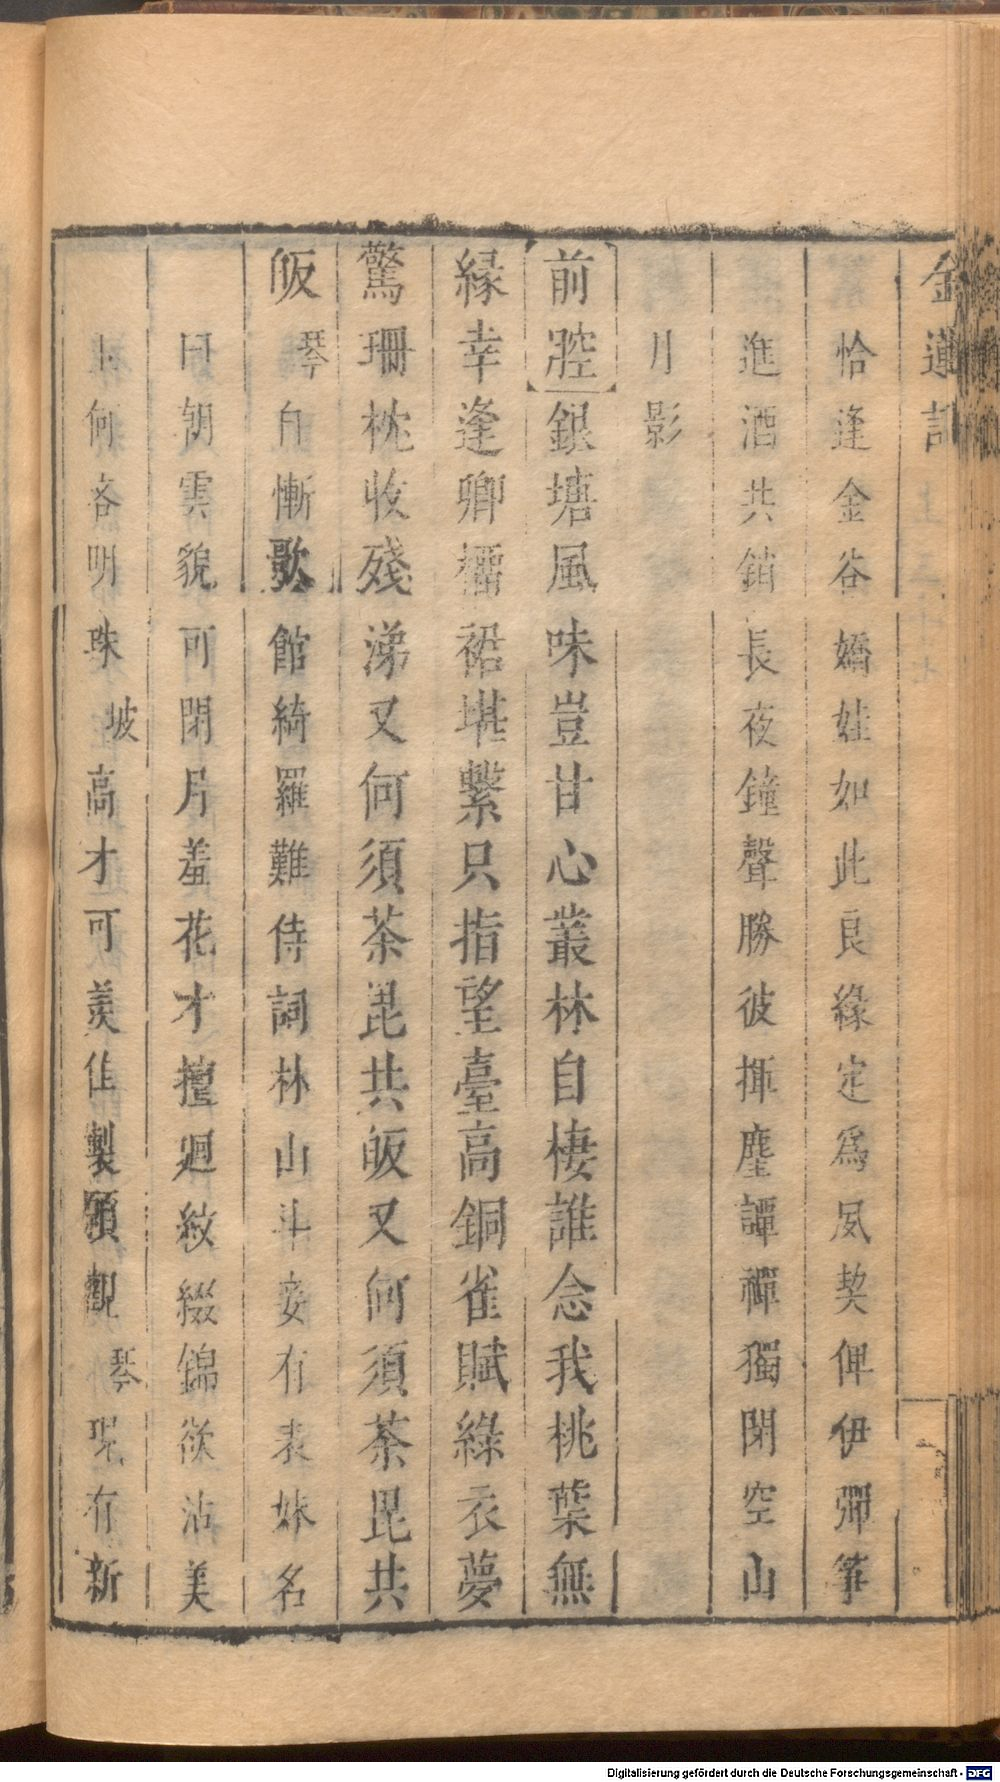 金蓮記
恰逢金谷嬌娃如此良緣定為夙契俾伊彈箏
進酒共銷長夜鐘聲勝彼揮麈譚禪獨閉空山
月影
前腔銀塘風味豈甘心叢林自棲誰念我桃葉無
緣幸逢卿裙堪繫只指望臺高銅雀賦綠衣夢
驚珊枕收殘涕又何須茶毘共皈又何須茶毘共
皈琴自慚歌館綺羅難侍詞林山斗妾有表妹名
曰朝雲貌可閉月羞花才擅迴紋綴錦欲沾美
士何吝明珠坡高才可羨佳製願觀琴現有新
Digitalisierung gefördert durch die Deutsche Forschungsgemeinschaft - DFG